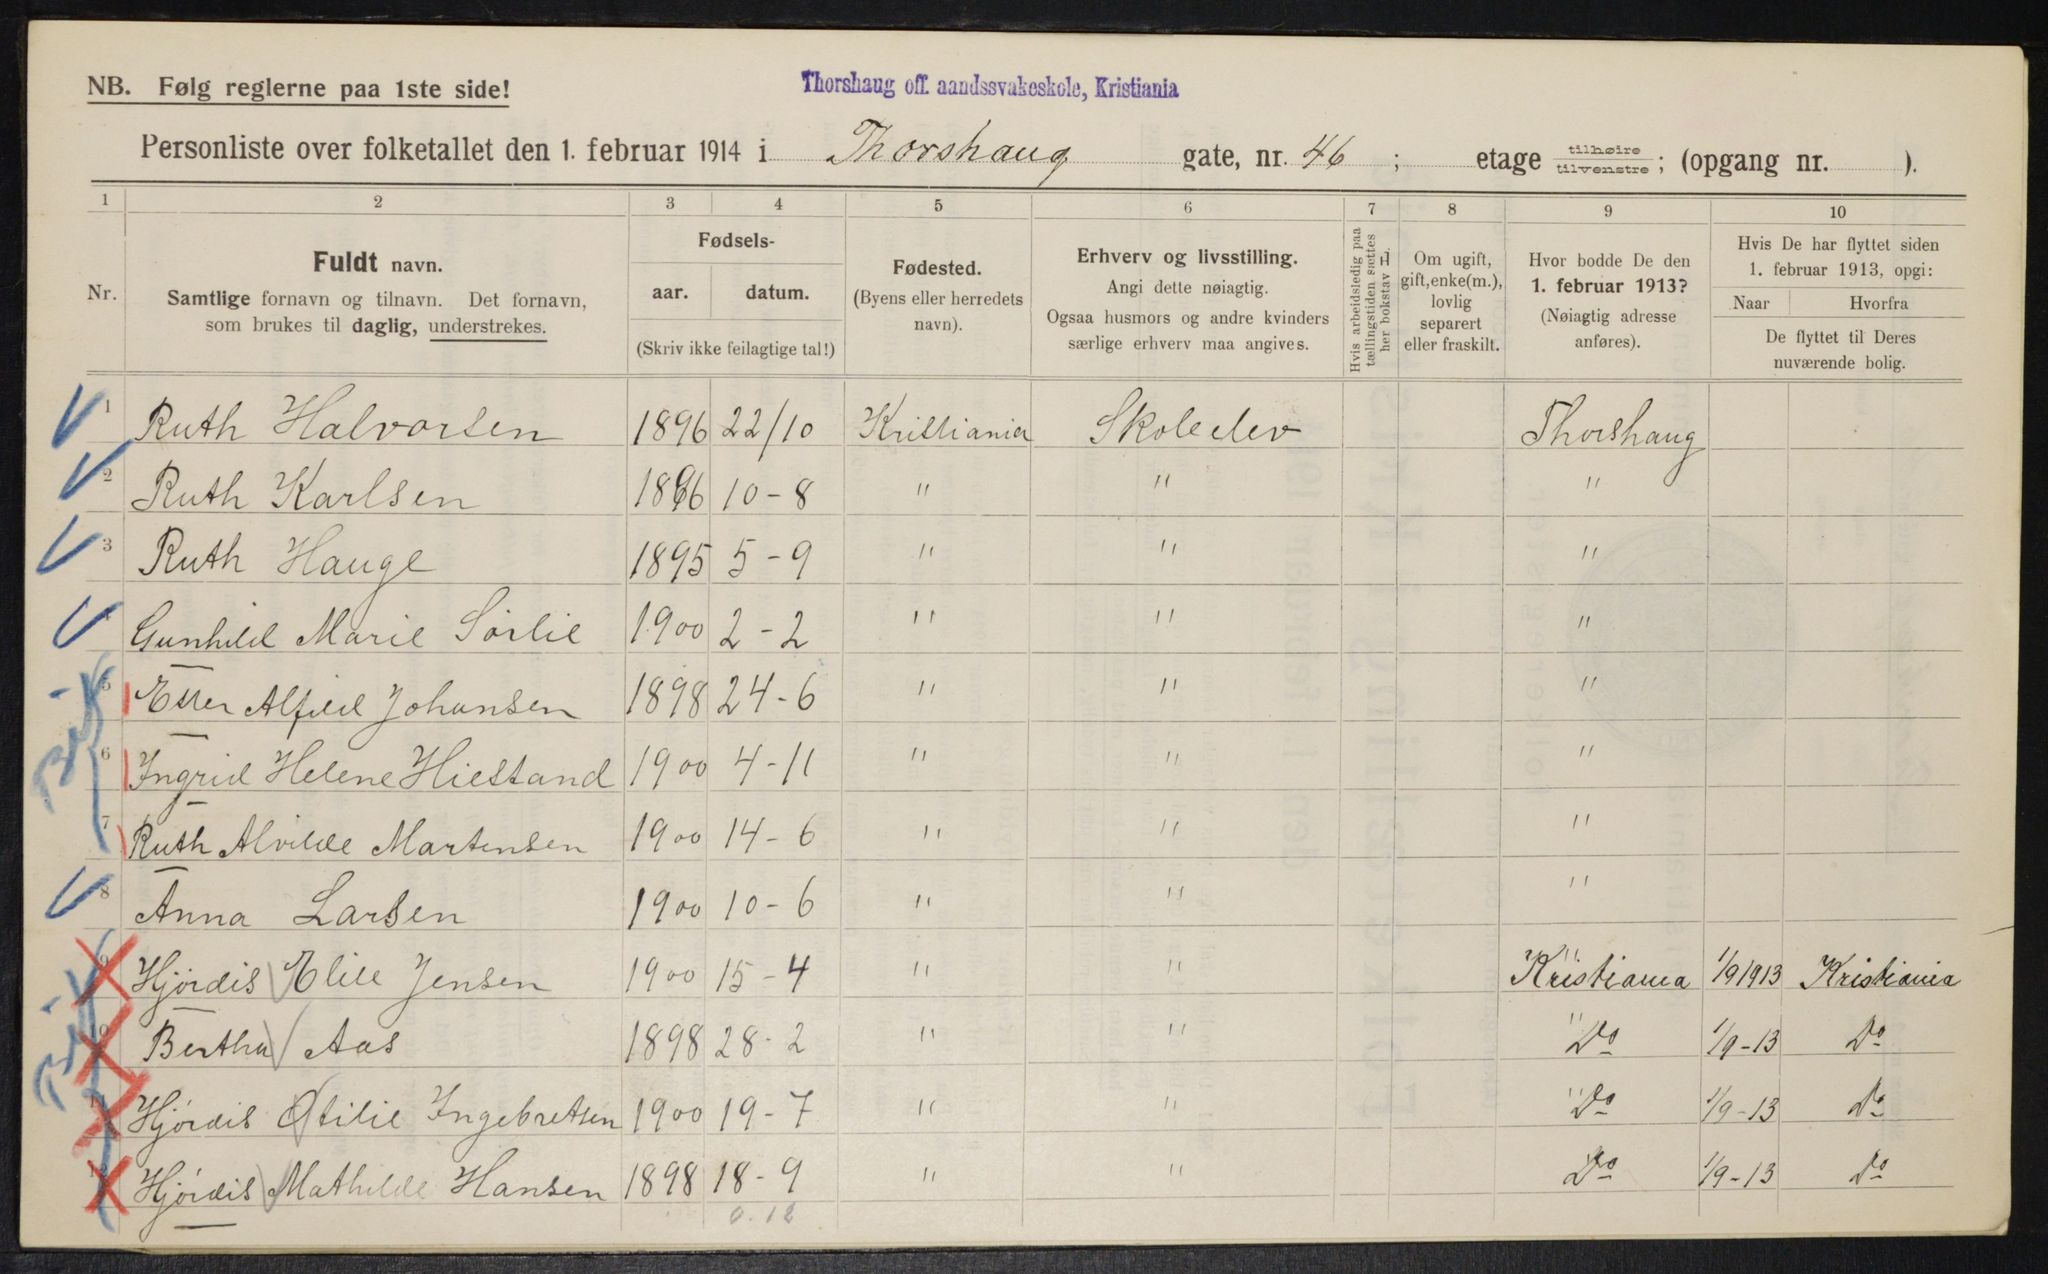 NB. Følg reglerne paa 1ste side!
Thorshaug off. aandssvakeskole, Kristiania
Personliste over folketallet den 1. februar 1914 i Thorshaug gate, nr. 46 ; etage tilhøire tilvenstre ; (opgang nr. ).
1 2 3 4 5 6 7 8 9 10
Nr.
Fuldt navn.
Samtlige fornavn og tilnavn. Det fornavn,
som brukes til daglig, understrekes.
Fødsels-
aar. datum.
(Skriv ikke feilagtige tal!)
Fødested.
(Byens eller herredets
navn).
Erhverv og livsstilling.
Angi dette nøiagtig.
Ogsaa husmors og andre kvinders
særlige erhverv maa angives.
Hvis arbeidsledig paa
tællingstiden sættes
her bokstav L.
Om ugift,
gift, enke(m.),
lovlig
separert
eller fraskilt.
Hvor bodde De den
1. februar 1913?
(Nøiagtig adresse
anføres).
Hvis De har flyttet siden
1. februar 1913, opgi:
Naar Hvorfra
De flyttet til Deres
nuværende bolig.
1 Ruth Halvorsen 1896 22/10 Kristiania Skoleelev Thorshaug
2 Ruth Karlsen 1896 10-8 " " "
3 Ruth Hauge 1895 5-9 " " "
4 Gunhild Marie Sörlie 1900 2-2 " " "
5 Ester Alfild Johansen 1898 24-6 " " "
6 Ingrid Helene Hiestand 1900 4-11 " " "
7 Ruth Alvilde Martensen 1900 14-6 " " "
8 Anna Larsen 1900 10-6 " " "
9 Hjördis Elise Jensen 1900 15-4 " " Kristiania 1/9 1913 Kristiania
10 Bertha Aas 1898 28-2 " " " Do 1/9-13 Do
11 Hjördis Otilie Ingebretsen 1900 19-7 " " " Do 1/9-13 Do
12 Hjördis Mathilde Hansen 1898 18-9 " " " Do 1/9-13 Do